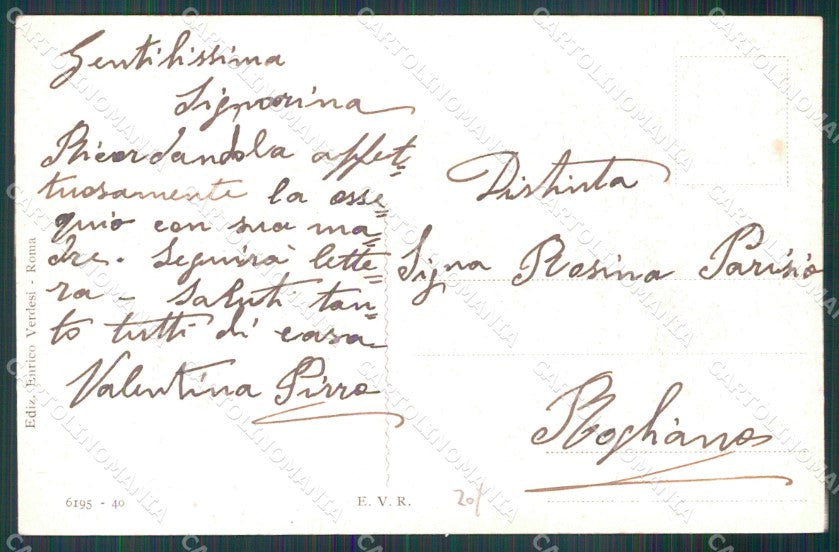 Gentilissima
Signorina
Ricordandola affet=
tuosamente la osse=
quio con sua ma=
dre. Seguirà lette=
ra - Saluti tan=
to tutti di casa
Valentina Pirro
Distinta
Signa Rosina Parisio
Rogliano
Ediz. Enrico Verdesi - Roma
6195 - 40
E. V. R.
CARTOLINOMANIA